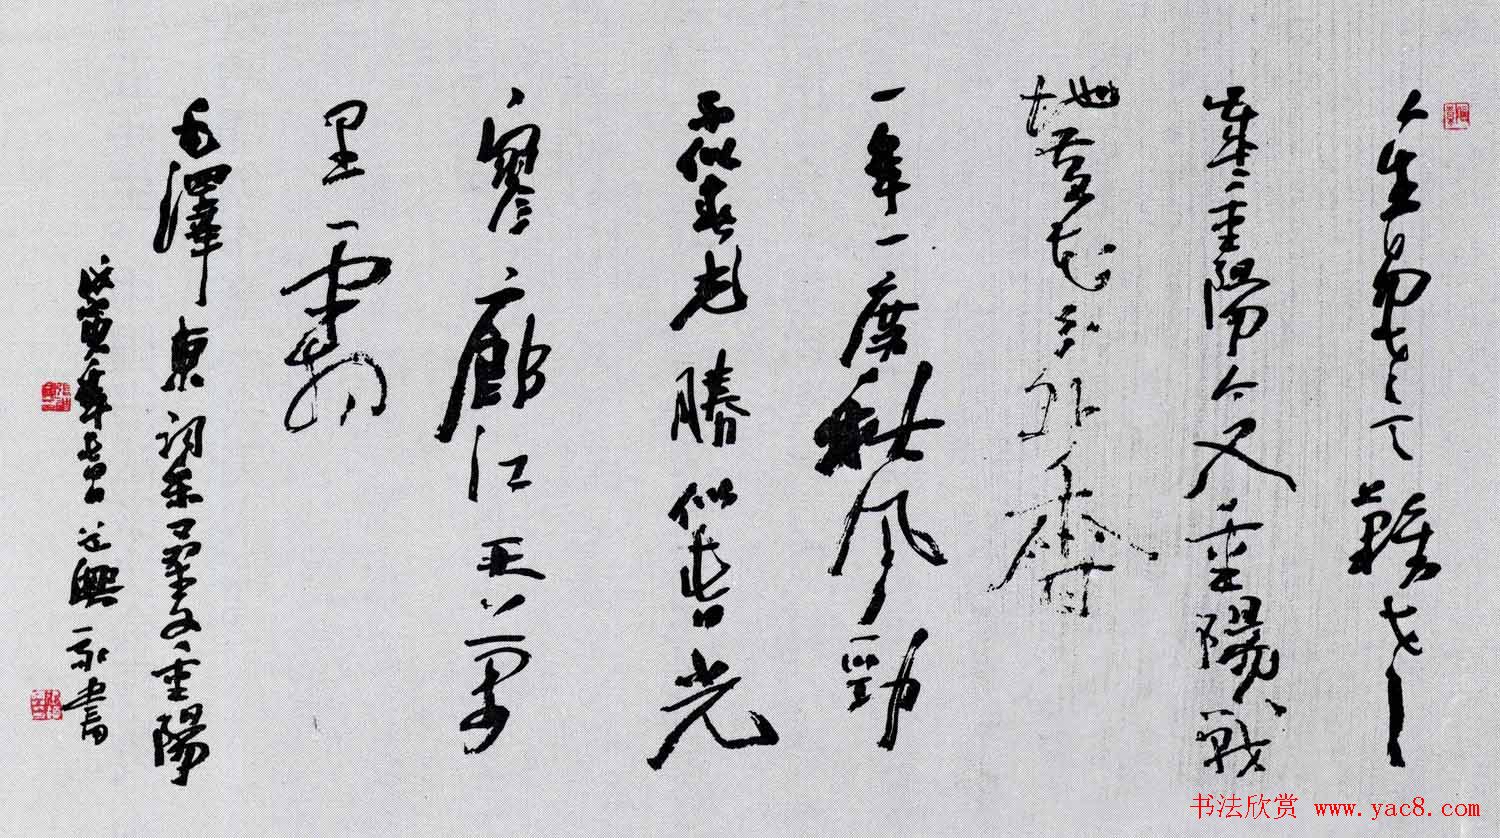 人生易老天難老
歲歲重陽今又重陽戰
地黃花分外香
一年一度秋風勁
不似春光勝似春光
寥廓江天萬
里霜
毛澤東詞采桑子重陽
戊寅年春興永書
书法欣赏 www.yac8.com